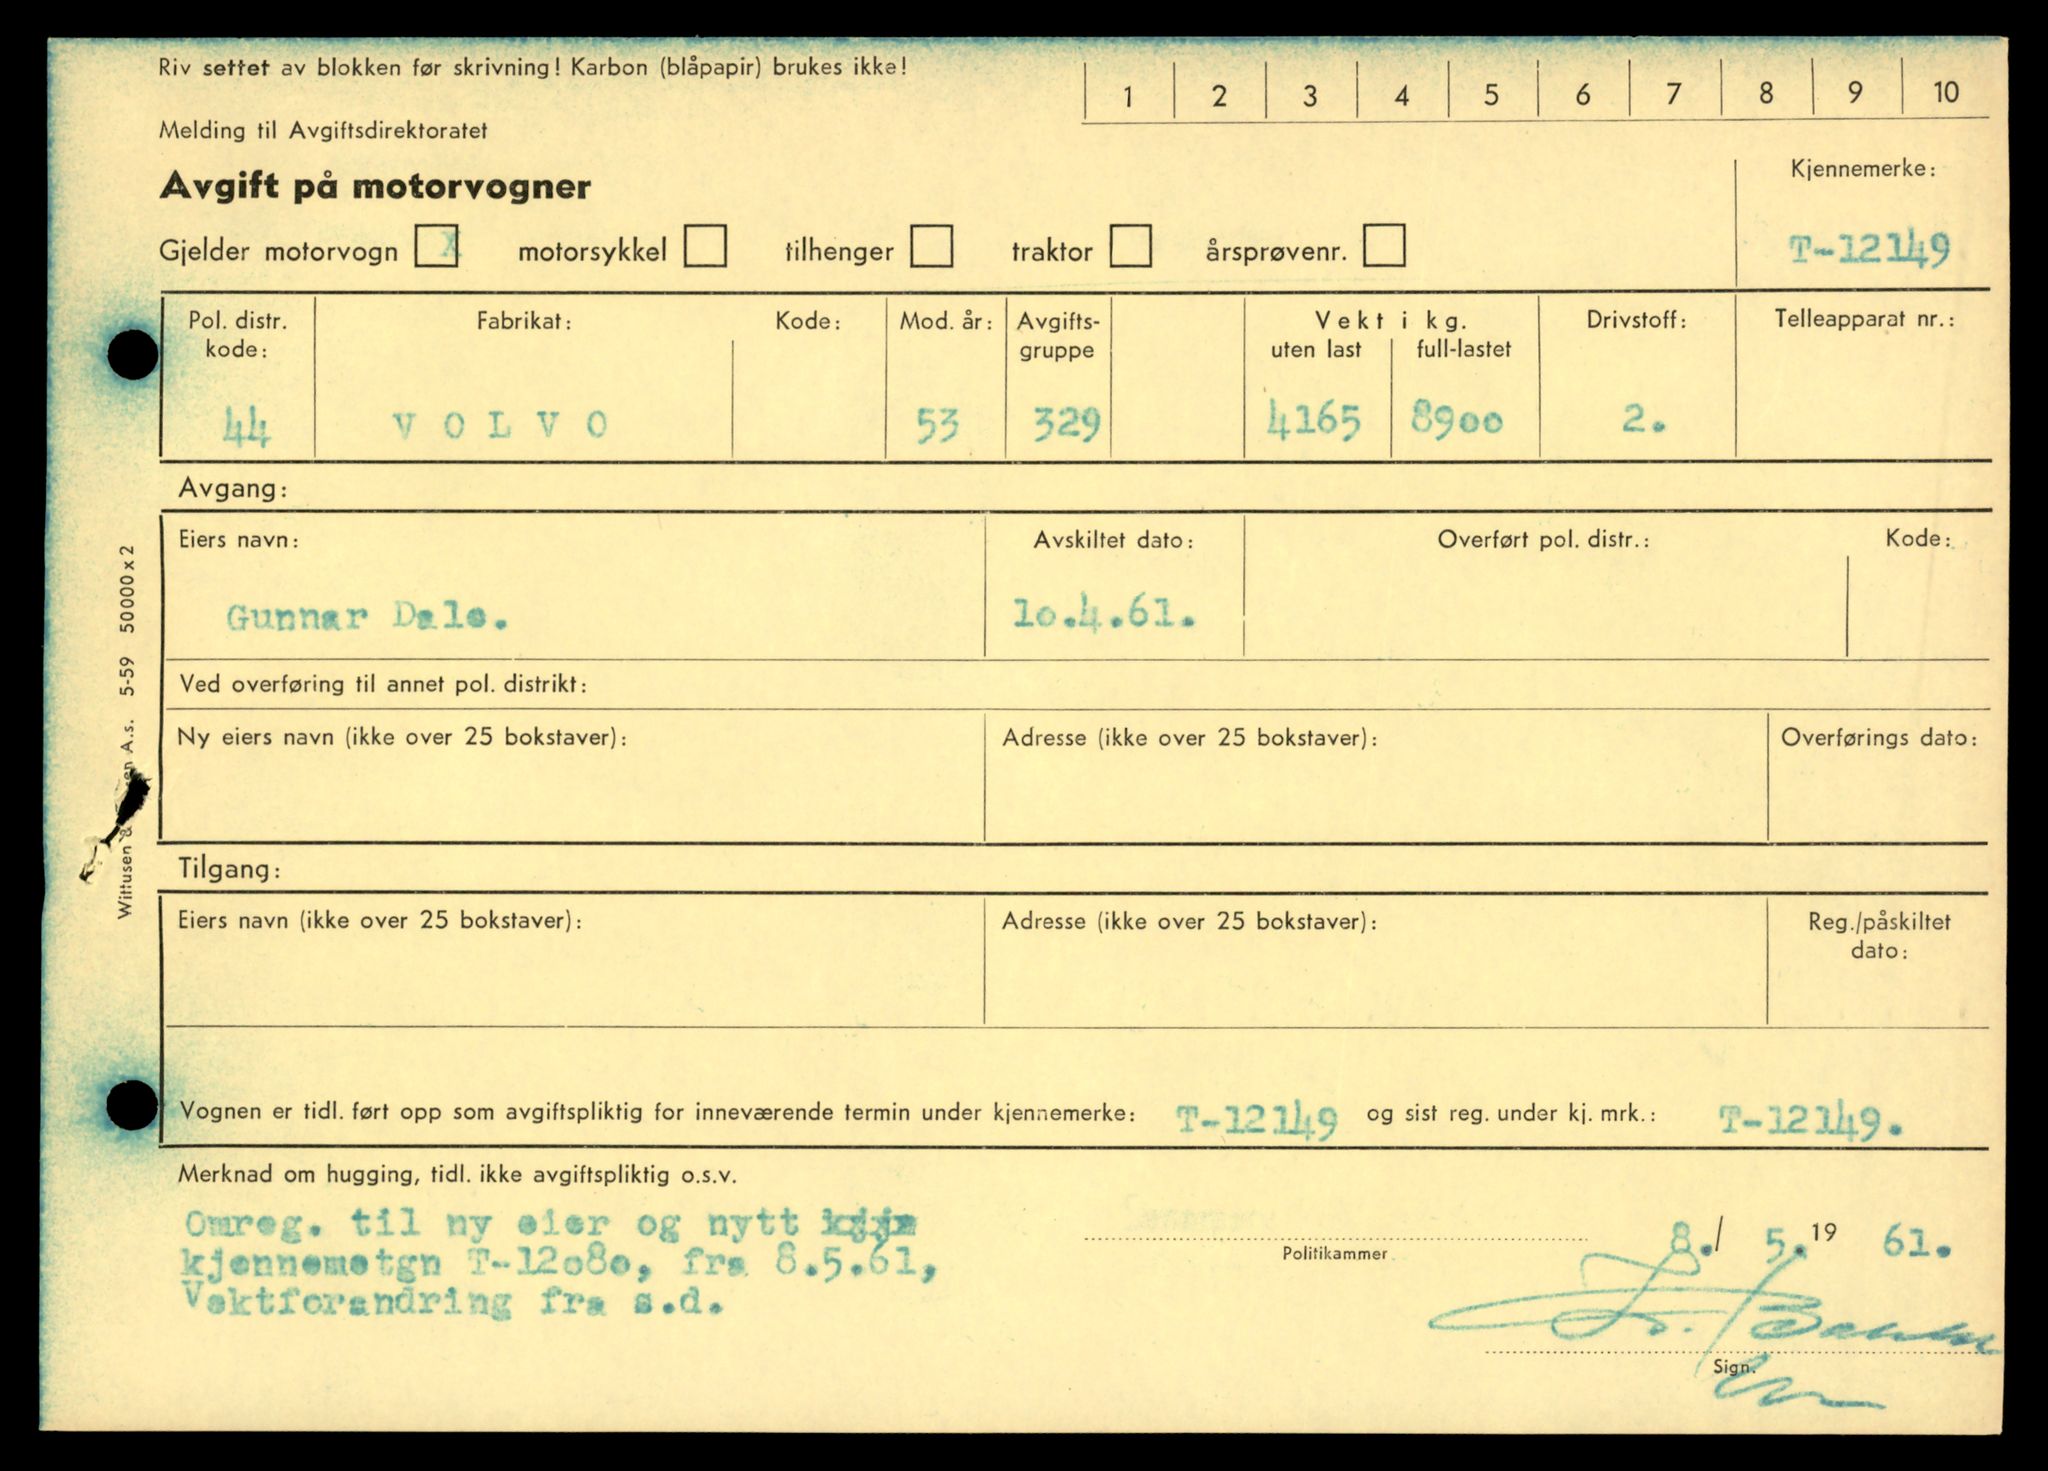 Riv settet av blokken før skrivning! Karbon (blåpapir) brukes ikke!
1 2 3 4 5 6 7 8 9 10
Melding til Avgiftsdirektoratet
Avgift på motorvogner
Kjennemerke:
Gjelder motorvogn X motorsykkel tilhenger traktor årsprøvenr.
T-12149
Pol. distr. kode: Fabrikat: Kode: Mod. år: Avgifts-gruppe Vekt i kg. Drivstoff: Telleapparat nr.:
uten last full-lastet
44 VOLVO 53 329 4165 8900 2.
Avgang:
Eiers navn: Avskiltet dato: Overført pol. distr.: Kode:
Gunnar Dale. 1o.4.61.
Ved overføring til annet pol. distrikt:
Ny eiers navn (ikke over 25 bokstaver): Adresse (ikke over 25 bokstaver): Overførings dato:
Tilgang:
Eiers navn (ikke over 25 bokstaver): Adresse (ikke over 25 bokstaver): Reg./påskiltet
dato:
Vognen er tidl. ført opp som avgiftspliktig for inneværende termin under kjennemerke: T-12149 og sist reg. under kj. mrk.: T-12149.
Merknad om hugging, tidl. ikke avgiftspliktig o.s.v.
Omreg. til ny eier og nytt
kjennemetgn T-12o8o, fra 8.5.61,
Vektforandring fra s.d.
Politikammer
8./ 5. 19 61.
Sign.
Wittusen & en A.s. 5-59 50000 x 2